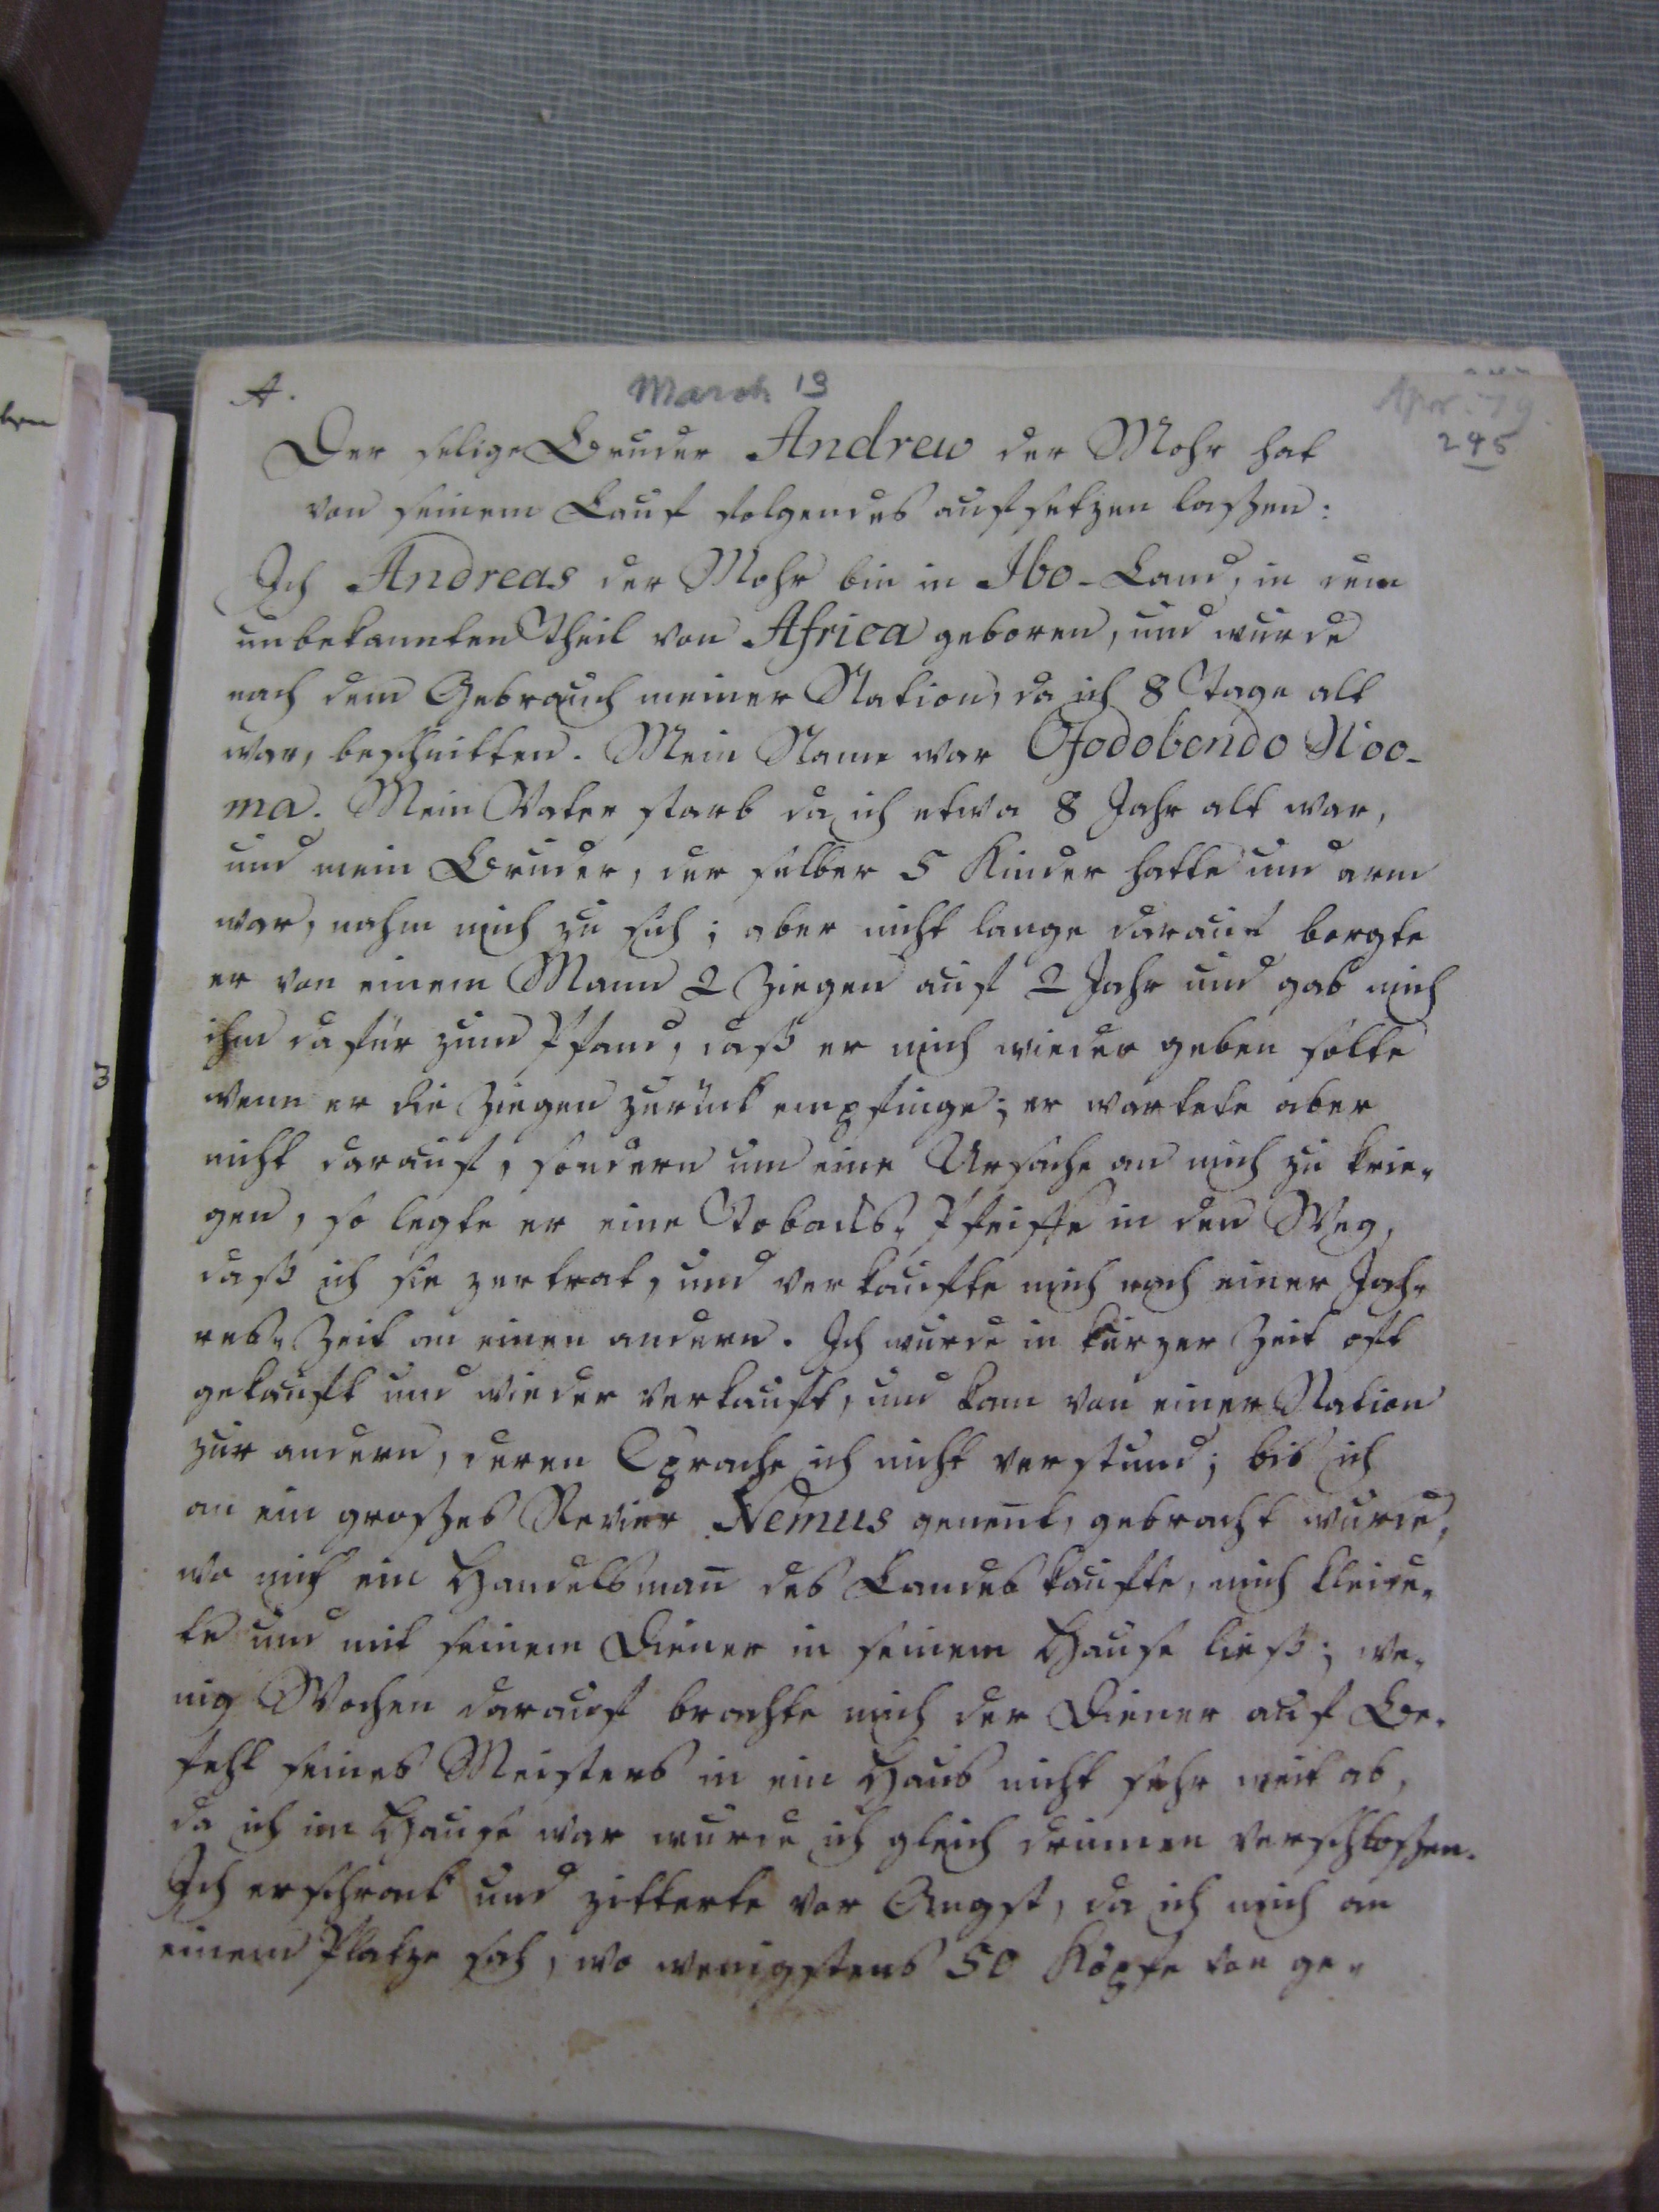 A.
March 13
Apr. 79
245
Der selige Bruder Andrew der Mohr hat
von seinem Lauf folgendes aufsetzen laßen:
Ich Andreas der Mohr bin in Ibo-Land, in dem
unbekannten Theil von Africa geboren, und wurde
nach dem Gebrauch meiner Nation, da ich 8 Tage alt
war, beschnitten. Mein Name war Ofodobendo Woo-
ma. Mein Vater starb da ich etwa 8 Jahr alt war,
und mein Bruder, der selber 5 Kinder hatte und arm
war, nahm mich zu sich; aber nicht lange darauf borgte
er von einem Mann 2 Ziegen auf 2 Jahr und gab mich
ihm dafür zum Pfand, daß er mich wieder geben solte
wenn er die Ziegen zurück empfinge; er wartete aber
nicht darauf, sondern um eine Ursache an mich zu krie-
gen, so legte er eine Tobacks-Pfeiffe in den Weg,
daß ich sie zertrat, und verkaufte mich nach einer Jah-
res-Zeit an einen andern. Ich wurde in kurzer Zeit oft
gekauft und wieder verkauft, und kam von einer Nation
zur andern, deren Sprache ich nicht verstund; bis ich
an ein großes Revier Nemus genen̄t, gebracht wurde,
wo mich ein Handelsman̄ des Landes kaufte, mich kleide-
te und mit seinem Diener in seinem Hause ließ; we-
nig Wochen darauf brachte mich der Diener auf Be-
fehl seines Meisters in ein Haus nicht sehr weit ab,
da ich im Hause war wurde ich gleich drinnen verschloßen.
Ich erschrack und zitterte vor Angst, da ich mich an
einem Platze sah, wo wenigstens 50 Köpfe von ge-